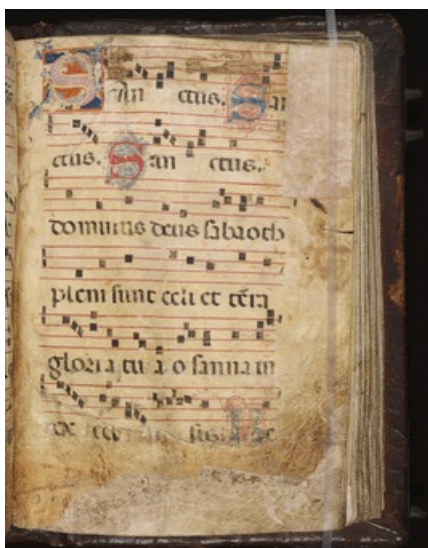 San ctus. San
ctus. San ctus.
dominus deus sabaoth
pleni sunt celi et tēra
gloria tu a o sanna in